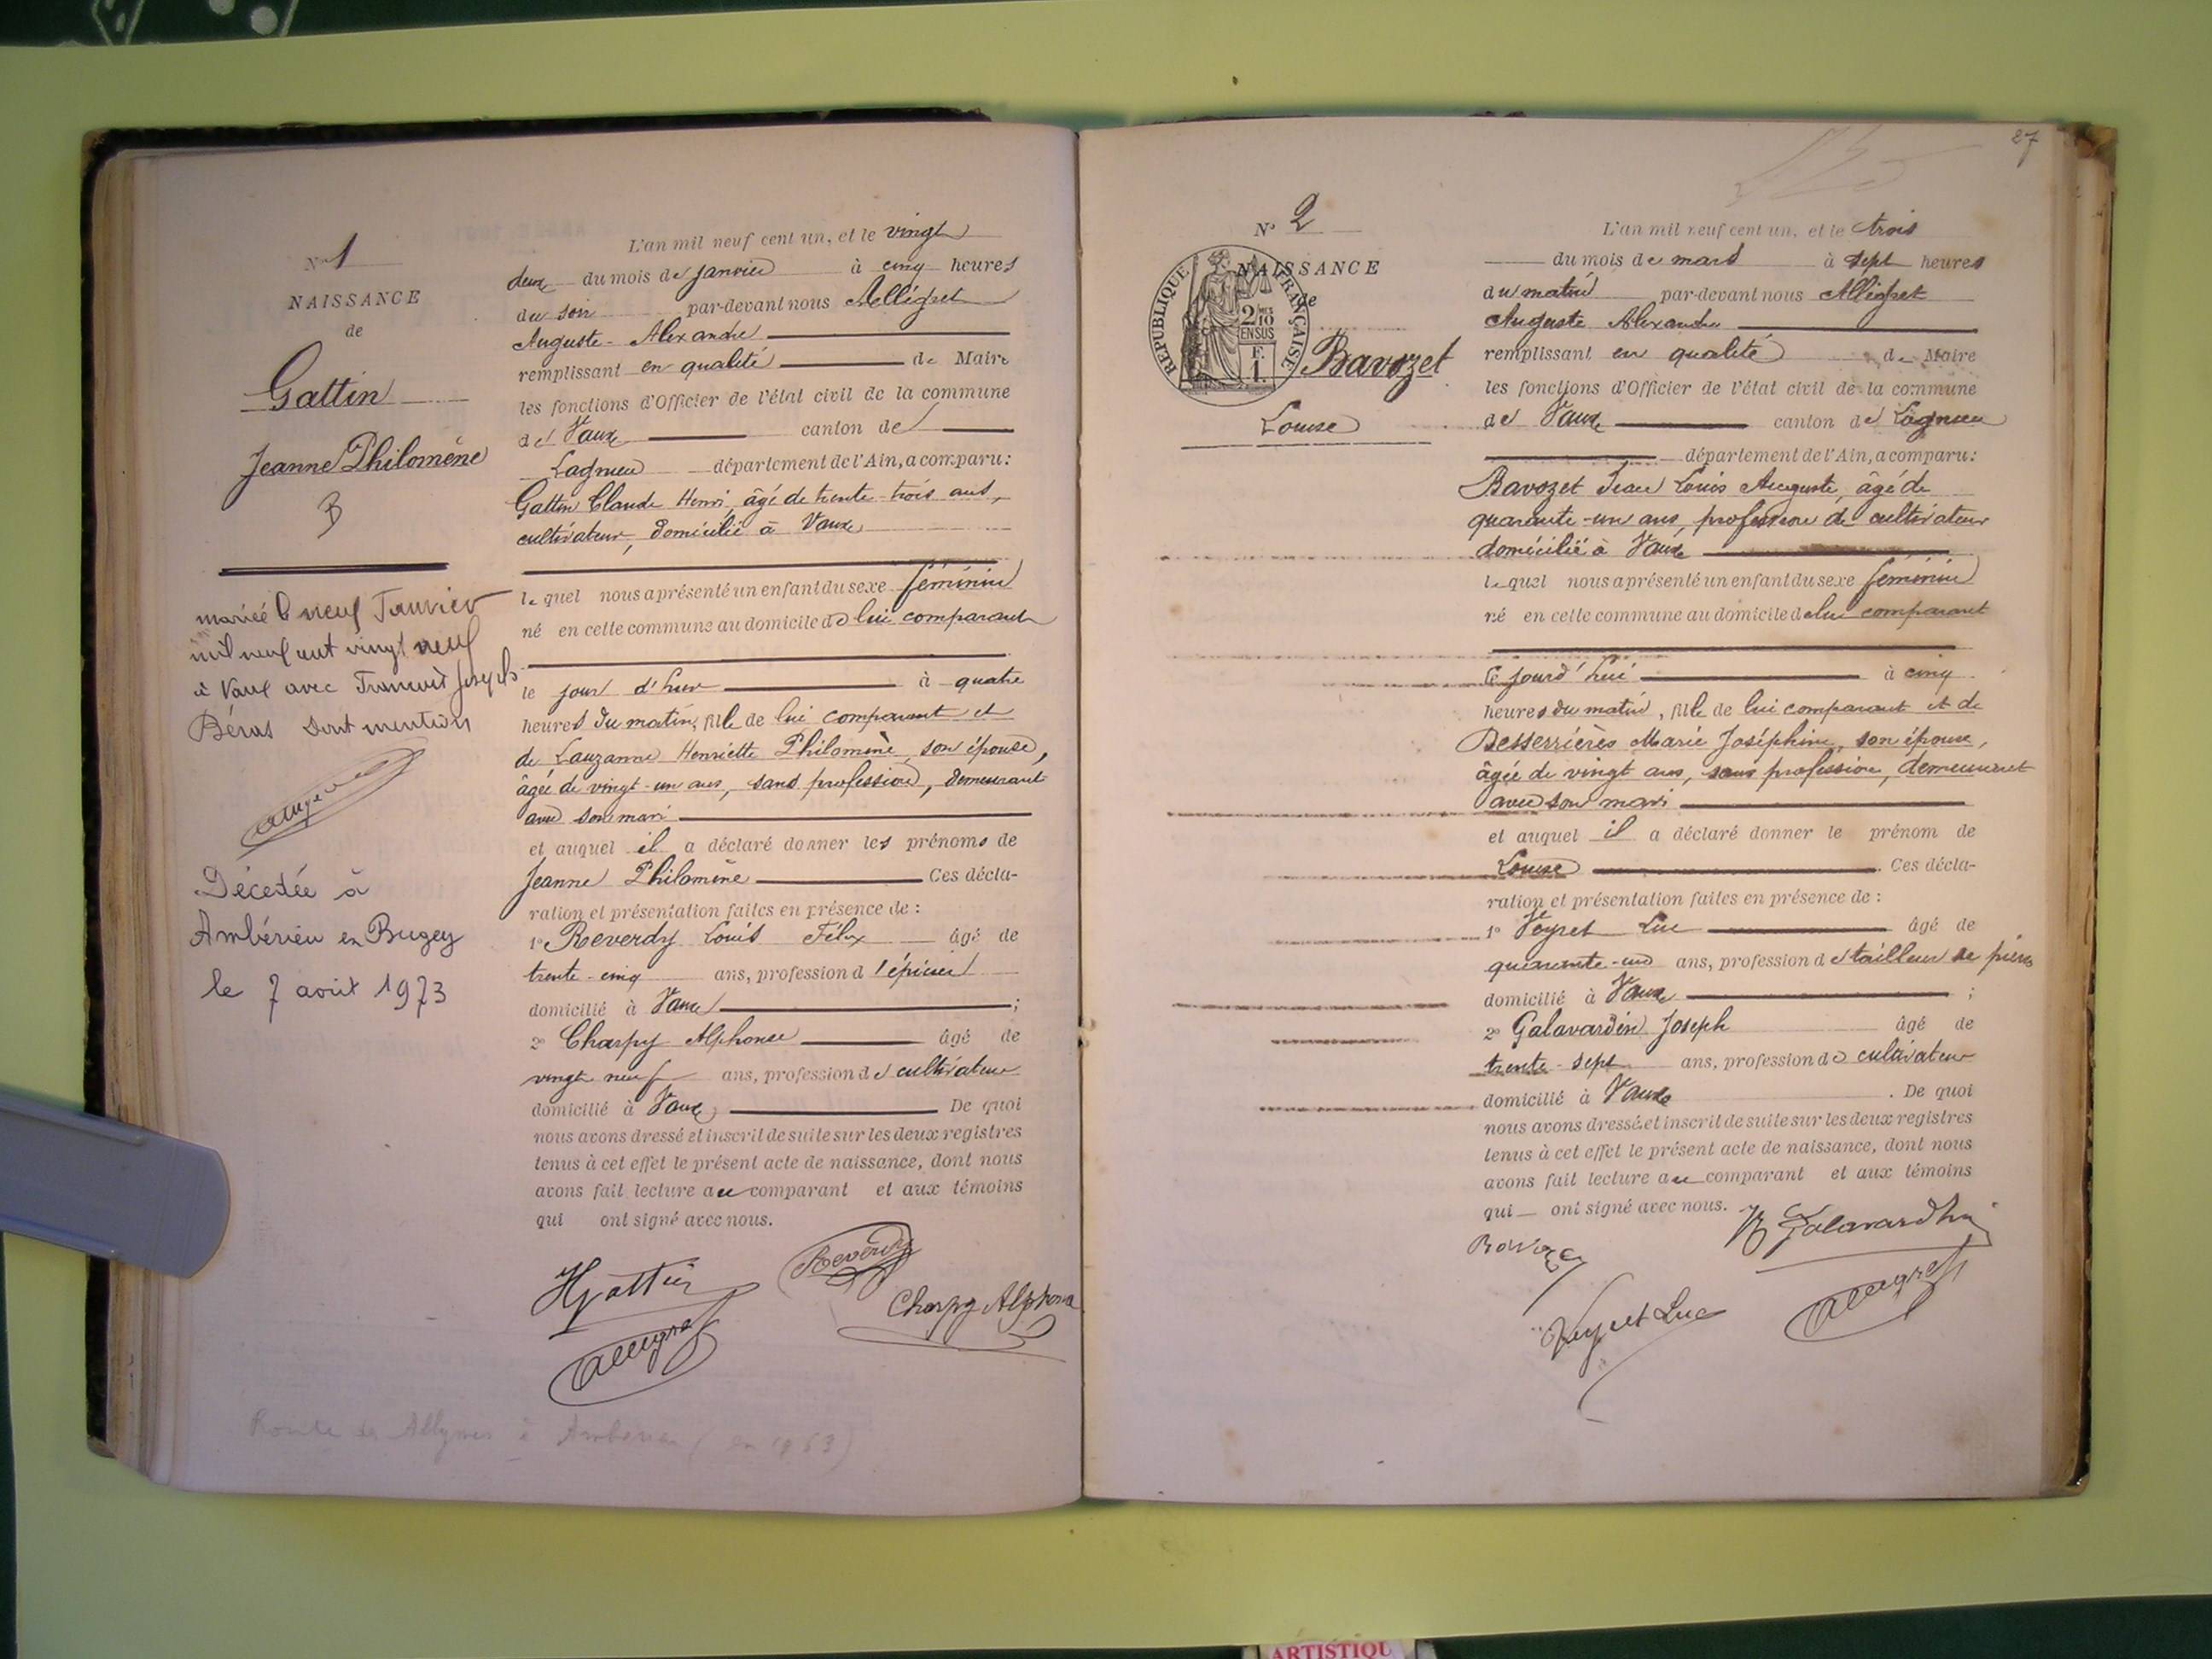 N° 1
NAISSANCE
de
Gattin
Jeanne Philomène
B
mariée le neuf Janvier
mil neuf cent vingt neuf
à Vaux avec François Joseph
Béras dont mention
Décédée à
Ambérieu en Bugey
le 7 août 1973
L'an mil neuf cent un, et le vingt
deux du mois de janvier à cinq heures
du soir par-devant nous Allégret
Auguste - Alexandre
remplissant en qualité de Maire
les fonctions d'Officier de l'état civil de la commune
de Vaux canton de
Lagnieu département de l'Ain, a comparu:
Gattin Claude Henri, âgé de trente-trois ans,
cultivateur, domicilié à Vaux
lequel nous a présenté un enfant du sexe féminin
né en cette commune au domicile de lui comparant
le jour d'hui à quatre
heures du matin, fille de lui comparant et
de Lauzanne Henriette Philomène, son épouse,
âgée de vingt-un ans, sans profession, demeurant
avec son mari
et auquel il a déclaré donner les prénoms de
Jeanne Philomène Ces décla-
ration et présentation faites en présence de :
1° Reverdy Louis Félix âgé de
trente-cinq ans, profession d'épicier
domicilié à Vaux ;
2° Charpy Alphonse âgé de
vingt neuf ans, profession de cultivateur
domicilié à Vaux, De quoi
nous avons dressé et inscrit de suite sur les deux registres
tenus à cet effet le présent acte de naissance, dont nous
avons fait lecture au comparant et aux témoins
qui ont signé avec nous.
HGattin
Reverdy
Charpy Alphonse
Allégret
Route des Allymes à Ambérieu (en 1953)
27
N° 2
NAISSANCE
de
REPUBLIQUE FRANÇAISE
2/10 EN SUS
F. 1.
Bavozet
Louise
L'an mil neuf cent un, et le trois
du mois de mars à sept heures
du matin par-devant nous Allégret
Auguste Alexandre
remplissant en qualité de Maire
les fonctions d'Officier de l'état civil de la commune
de Vaux canton de Lagnieu
département de l'Ain, a comparu:
Bavozet Jean Louis Auguste, âgé de
quarante-un ans, profession de cultivateur
domicilié à Vaux
lequel nous a présenté un enfant du sexe féminin
né en cette commune au domicile de lui comparant
le jourd'hui à cinq
heures du matin, fille de lui comparant et de
Desserrières Marie Joséphine, son épouse,
âgée de vingt ans, sans profession, demeurant
avec son mari
et auquel il a déclaré donner le prénom de
Louise . Ces décla-
ration et présentation faites en présence de :
1° Veyret Luc âgé de
quarante-un ans, profession de tailleur de pierres
domicilié à Vaux ;
2° Galavardin Joseph âgé de
trente-sept ans, profession de cultivateur
domicilié à Vaux . De quoi
nous avons dressé et inscrit de suite sur les deux registres
tenus à cet effet le présent acte de naissance, dont nous
avons fait lecture au comparant et aux témoins
qui ont signé avec nous.
Bavozet
Galavardin
Veyret Luc
Allégret
ARTISTIQU